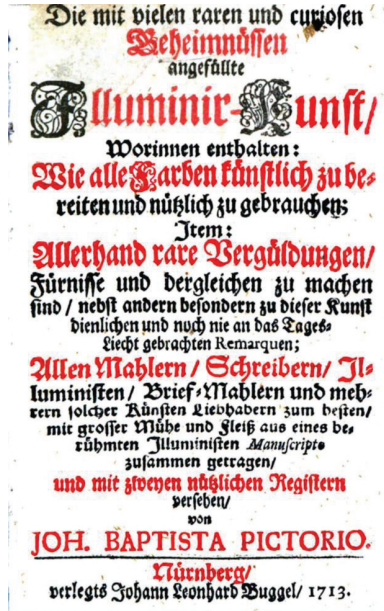 Die mit vielen raren und curiosen
Geheimnüssen
angefüllte
Illuminir-Kunst/
Worinnen enthalten:
Wie alle Farben künstlich zu be-
reiten und nützlich zu gebrauchen;
Item:
Allerhand rare Vergüldungen/
Fürnisse und dergleichen zu machen
sind / nebst andern besondern zu dieser Kunst
dienlichen und noch nie an das Tages-
Liecht gebrachten Remarquen;
Allen Mahlern / Schreibern / Il-
luministen / Brief-Mahlern und meh-
rern solcher Künsten Liebhabern zum besten /
mit grosser Mühe und Fleiß aus eines be-
rühmten Illuministen Manuscripto
zusammen getragen /
und mit zweyen nützlichen Registern
versehen /
von
JOH. BAPTISTA PICTORIO.
Nürnberg /
verlegts Johann Leonhard Buggel / 1713.